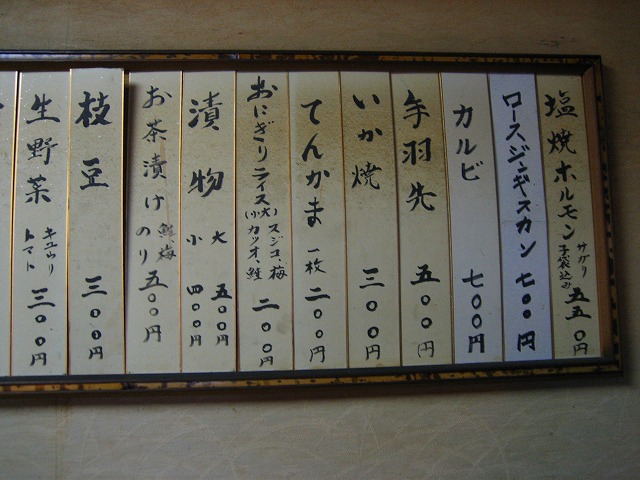 塩焼ホルモン サガリ 子袋込み 五五〇円
ロースジンギスカン 七〇〇円
カルビ 七〇〇円
手羽先 五〇〇円
いか焼 三〇〇円
てんかま 一枚 二〇〇円
おにぎり ライス(小・大) スジコ・梅 カツオ 鮭 二〇〇円
漬物 大 五〇〇円
小 四〇〇円
お茶漬け 鮭 梅 のり 五〇〇円
枝豆 三〇〇円
生野菜 キュウリ トマト 三〇〇円